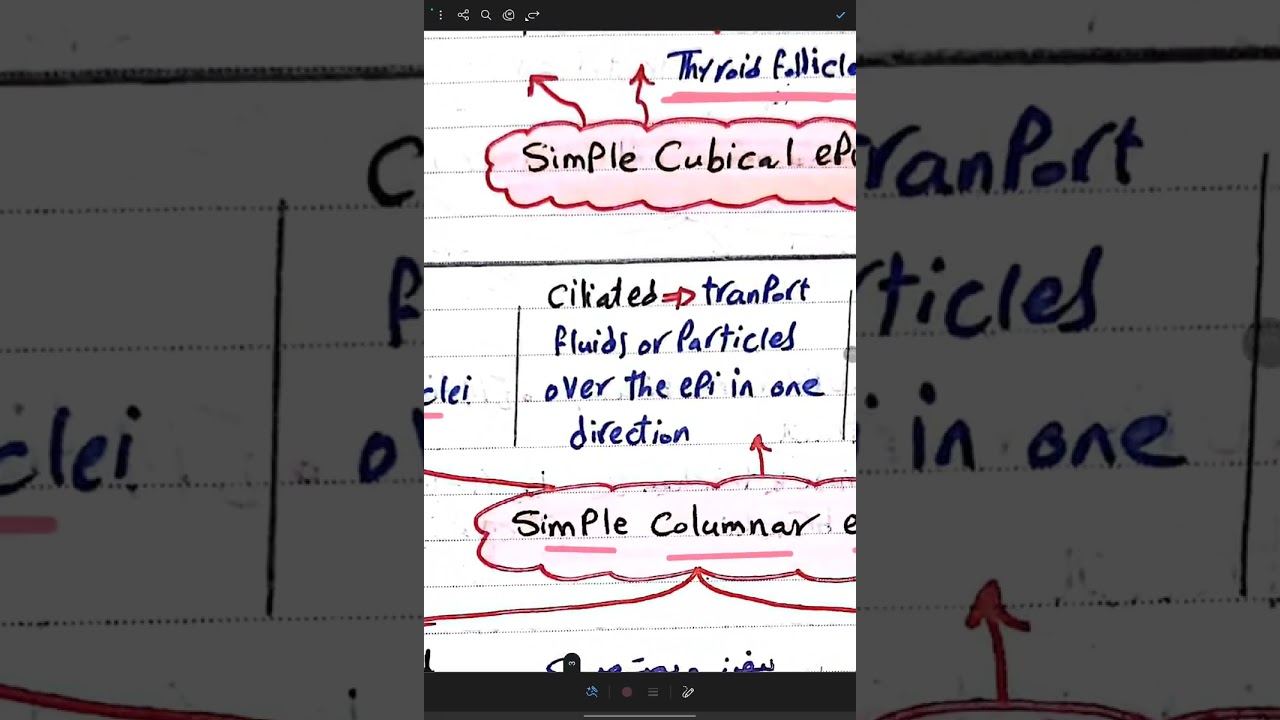 Thyroid follicle
Simple Cubical epi
Ciliated ⇒ tranport
fluids or Particles
over the epi in one
direction
clei
Simple Columnar e